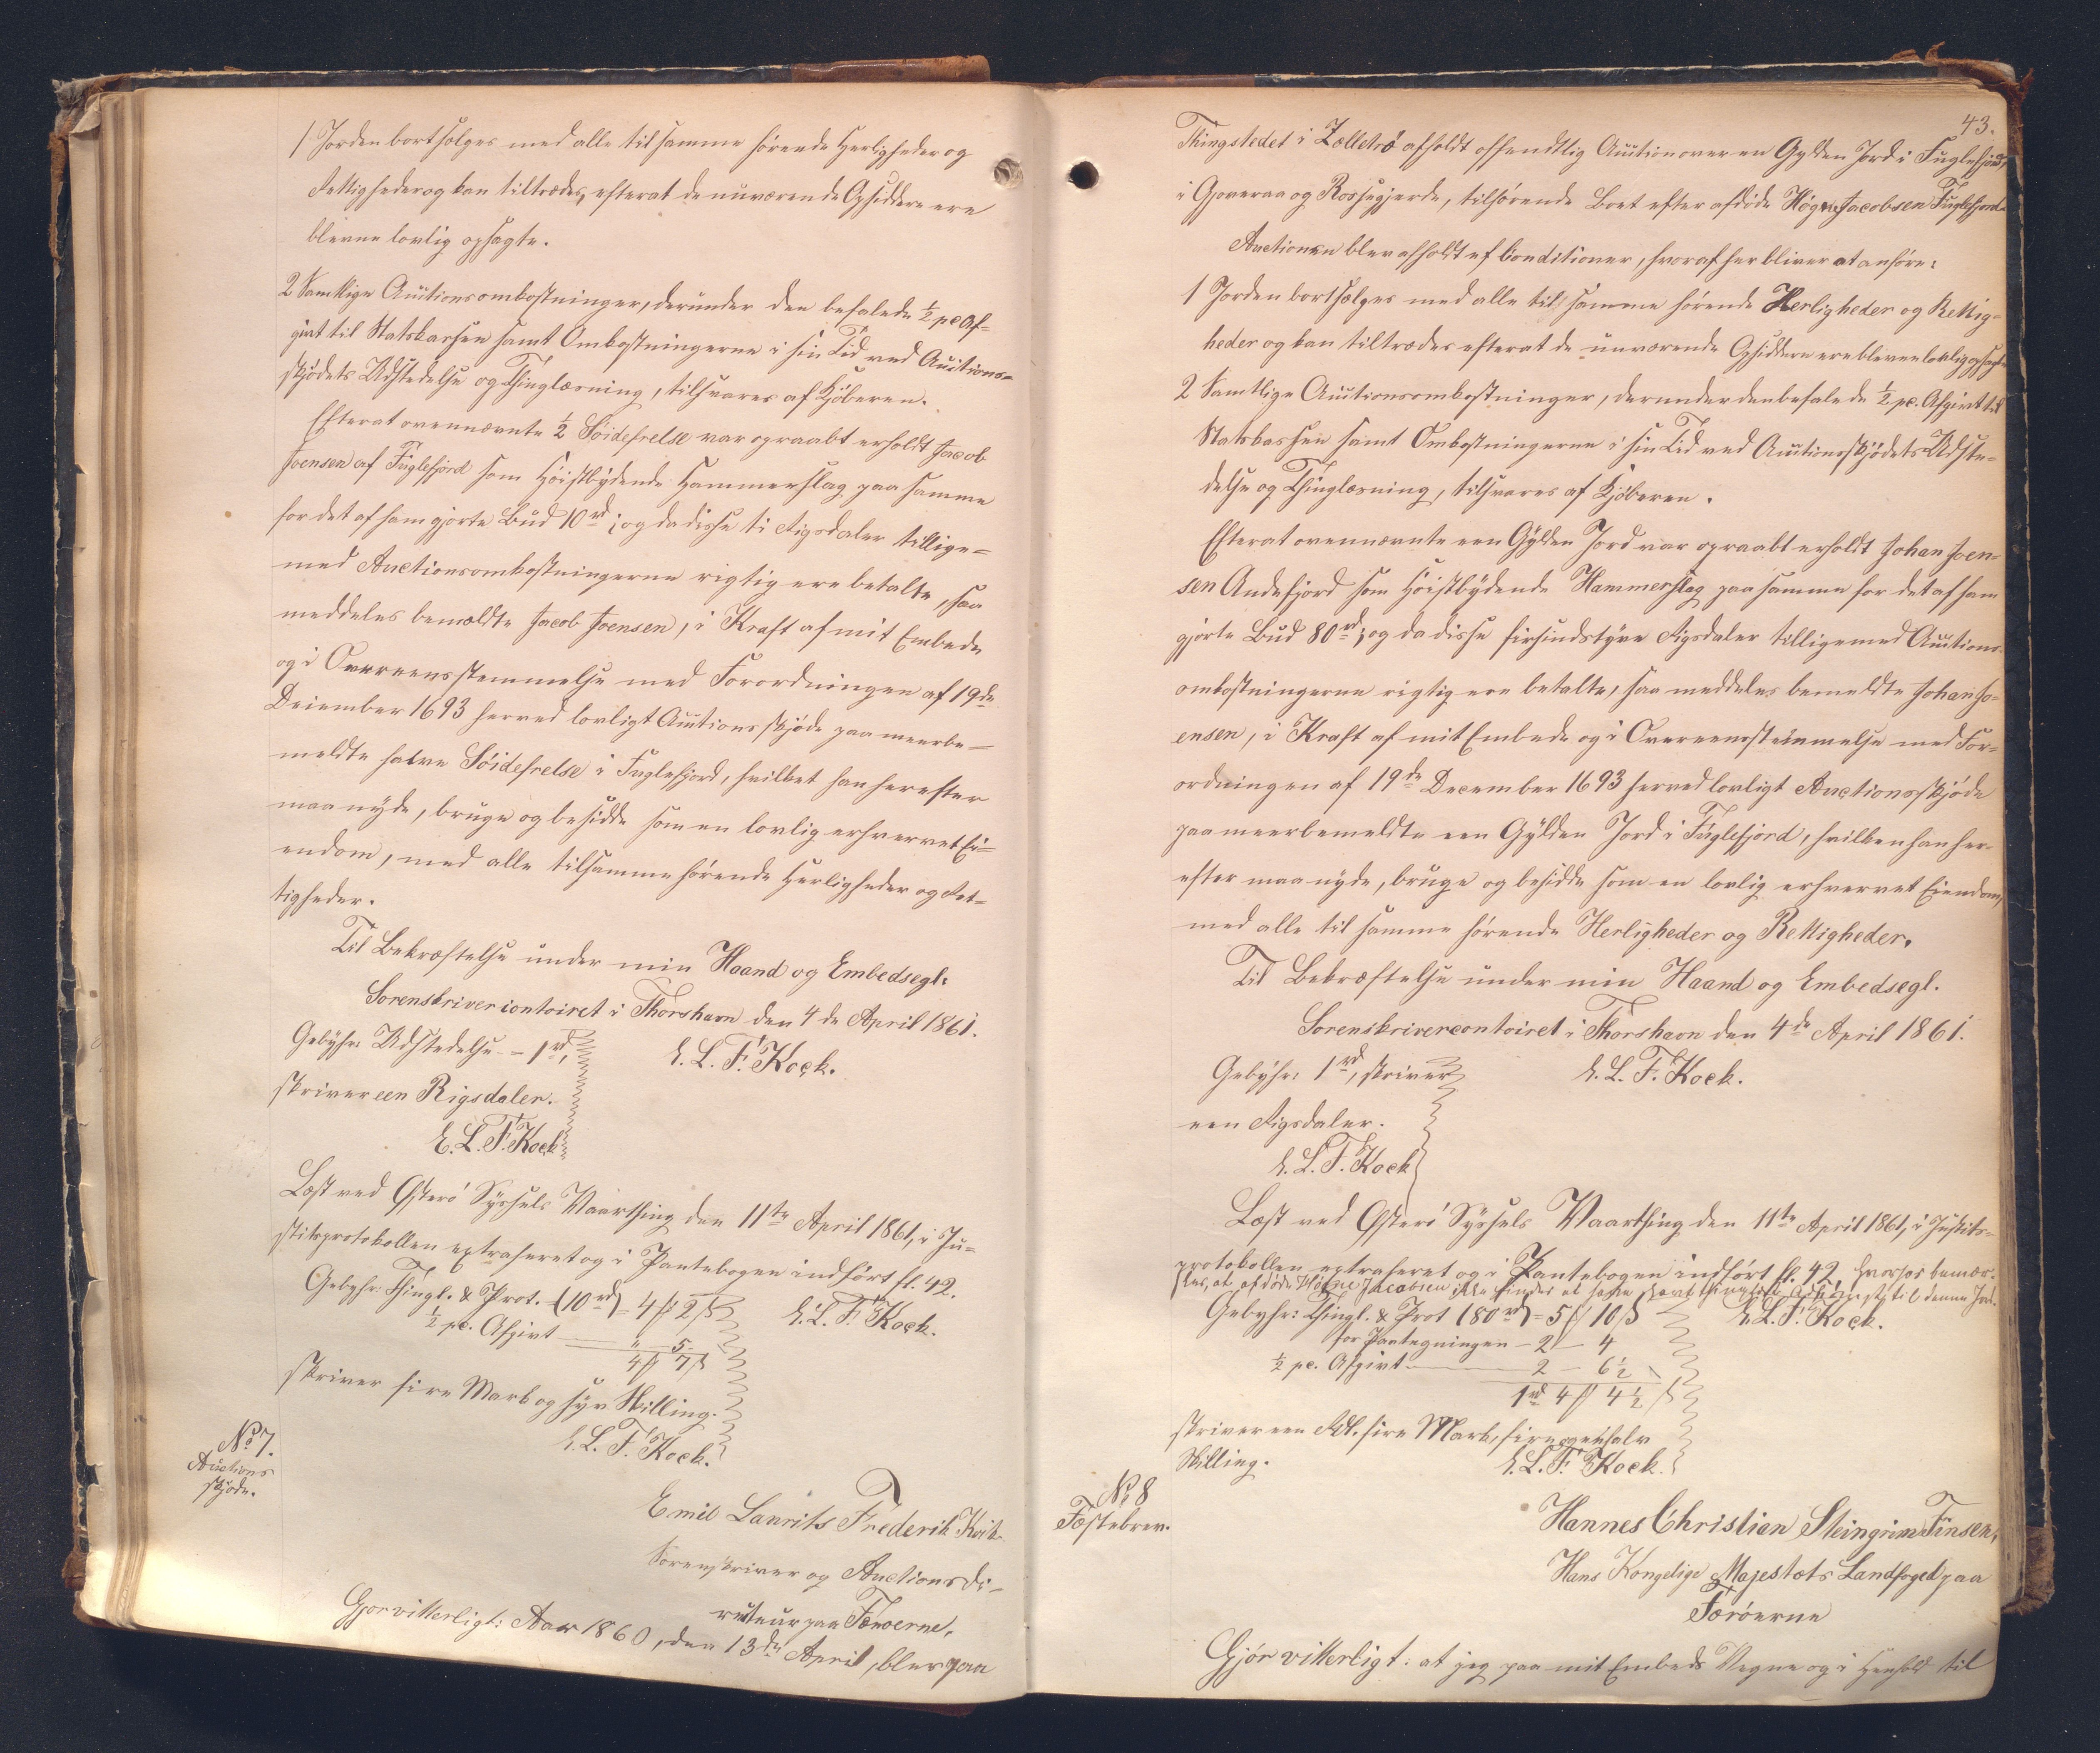 1 Jorden bortsælges med alle til samme hørende Herligheder og
Rettigheder og kan tiltrædes, efterat de nuværende Opsiddere ere
blevne lovlig opsagte.
2 Samtlige Auctionsomkostninger, derunder den befalede ½ pc Af-
givt til Statskassen samt Omkostningerne i sin Tid ved Auctions-
skjødets Udstedelse og Thinglæsning, tilsvares af Kjøberen.
Efterat ovennævnte ½ Søidefrelse var opraabt erholdt Jacob
Joensen af Fuglefjord som Høistbydende Hammerslag paa samme
for det af ham gjorte Bud 10 rd; og da disse ti Rigsdaler tillige-
med Auctionsomkostningerne rigtig ere betalte, saa
meddeles bemældte Jacob Joensen, i Kraft af mit Embede
og i Overeensstemmelse med Forordningen af 19de
December 1693 herved lovligt Auctionsskjøde paa meerbe-
meldte halve Søidefrelse i Fuglefjord, hvilket han herefter
maa nyde, bruge og besidde som en lovlig erhvervet Ei-
endom, med alle til samme hørende Herligheder og Ret-
tigheder.
Til Bekræftelse under min Haand og Embedsegl:
Sorenskrivercontoiret i Thorshavn den 4de April 1861.
Gebyhr: Udstedelse - 1 rd,
E. L. F. Kock.
skriver een Rigsdaler.
E. L. F. Kock
Læst ved Østerø Syssels Vaarthing den 11te April 1861, i Ju-
stitsprotokollen extraheret og i Pantebogen indført fl. 42.
Gebyhr: Thingl. & Prot. (10 rd) = 4 ₰ 2 β
E. L. F. Kock.
½ pc. Afgivt — " 5
4 ₰ 7 β
skriver fire Mark og syv Skilling.
E. L. F. Kock.
No 7.
Auctions
skjøde.
Emil Laurits Frederik Kock
Sorenskriver og Auctionsdi-
recteur paa Færoerne,
Gjør vitterligt: Aar 1860, den 13de April, blev paa
43.
Thingstedet i Zelletræ afholdt offentlig Auction over en Gylden Jord i Fuglefjord,
i Gjoveraa og Roshugjerde, tilhørende Boet efter afdøde Høgne Jacobsen Fuglefjord.
Auctionen blev afholdt ef Conditioner, hvoraf her bliver at anføre:
1 Jorden bortsælges med alle til samme hørende Herligheder og Rettig-
heder og kan tiltrædes efterat de nuværende Opsiddere ere blevne lovlig opsagte
2 Samtlige Auctionsomkostninger, derunder den befalede ½ pc. Afgivt til
Statskassen samt Omkostningerne i sin Tid ved Auctionsskjødets Udste-
delse og Thinglæsning, tilsvares af Kjøberen.
Efterat ovennævnte een Gylden Jord var opraabt erholdt Johan Joen-
sen Andefjord som Høistbydende Hammerslag paa samme for det af ham
gjorte Bud 80 rd; og da disse firsindstyve Rigsdaler tilligemed Auctions-
omkostningerne rigtig ere betalte, saa meddeles bemeldte Johan Jo-
ensen, i Kraft af mit Embede og i Overeensstemmelse med For-
ordningen af 19de December 1693 herved lovligt Auctionsskjøde
paa meerbemeldte een Gylden Jord i Fuglefjord, hvilken han her-
efter maa nyde, bruge og besidde som en lovlig erhvervet Eiendom,
med alle til samme hørende Herligheder og Rettigheder.
Til Bekræftelse under min Haand og Embedsegl.
Sorenskrivercontoiret i Thorshavn den 4de April 1861.
Gebyhr: 1 rd, skriver
E. L. F. Kock.
een Rigsdaler.
E. L. F. Kock
Læst ved Østerø Syssels Vaarthing den 11te April 1861, i Justits-
protokollen extraheret og i Pantebogen indført fl. 42, hvorhos bemær-
kes, at afdøde Høgne Jacobsen ikke findes at have havt thinglæst Adkomst til denne Jord.
Gebyhr: Thingl. & Prot (80 rd) = 5 ₰ 10 β
E. L. F. Kock.
for Paategningen - 2 - 4
½ pc. Afgivt — 2 - 6½
1 rd 4 ₰ 4½ β
skriver een Rdl. fire Mark, fire og en halv
Skilling.
E. L. F. Kock.
No 8
Fæstebrev.
Hannes Christian Steingrim Finsen,
Hans Kongelige Majestæts Landfoged paa
Færøerne
Gjør vitterligt: at jeg paa mit Embeds Vegne og i Henhold til